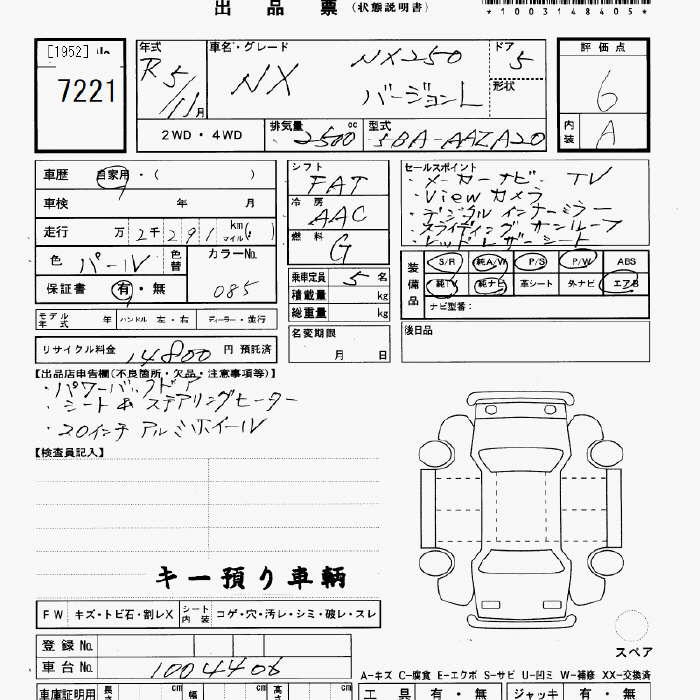 出 品 票 (状態説明書)
*1003148405*
[1952]
7221
年式
R5/11月
車名・グレード
NX NX250
バージョンL
ドア
5
形状
評価点
6
内装
A
2WD・4WD
排気量
2500 cc
型式
5BA-AAZA20
車歴
自家用・( )
車検 年 月
走行 万 2千 2 9 1 km マイル( )
色 パール 色替
カラーNo.
085
保証書 有・無
モデル年式 年 ハンドル 左・右 ディーラー・並行
リサイクル料金 14800 円 預託済
シフト
FAT
冷房
AAC
燃料
G
乗車定員 5 名
積載量 kg
総重量 kg
名変期限
月 日
セールスポイント
・メーカーナビ. TV
・Viewカメラ
・デジタルインナーミラー
・スライディングサンルーフ
・レッドレザーシート
装備品
S/R 純A/W P/S P/W ABS
純TV 純ナビ 革シート 外ナビ エアB
ナビ型番:
後日品
【出品店申告欄(不良箇所・欠品・注意事項等)】
・パワーバックドア
・シート& ステアリングヒーター
・20インチ アルミホイール
【検査員記入】
キー預り車輌
FW キズ・トビ石・割レX シート内装 コゲ・穴・汚レ・シミ・破レ・スレ
登録No.
車台No. 1004406
車庫証明用 長さ cm 幅 cm 高さ cm
スペア
A-キズ C-腐食 E-エクボ S-サビ U-凹ミ W-補修 XX-交換済
工具 有・無 ジャッキ 有・無